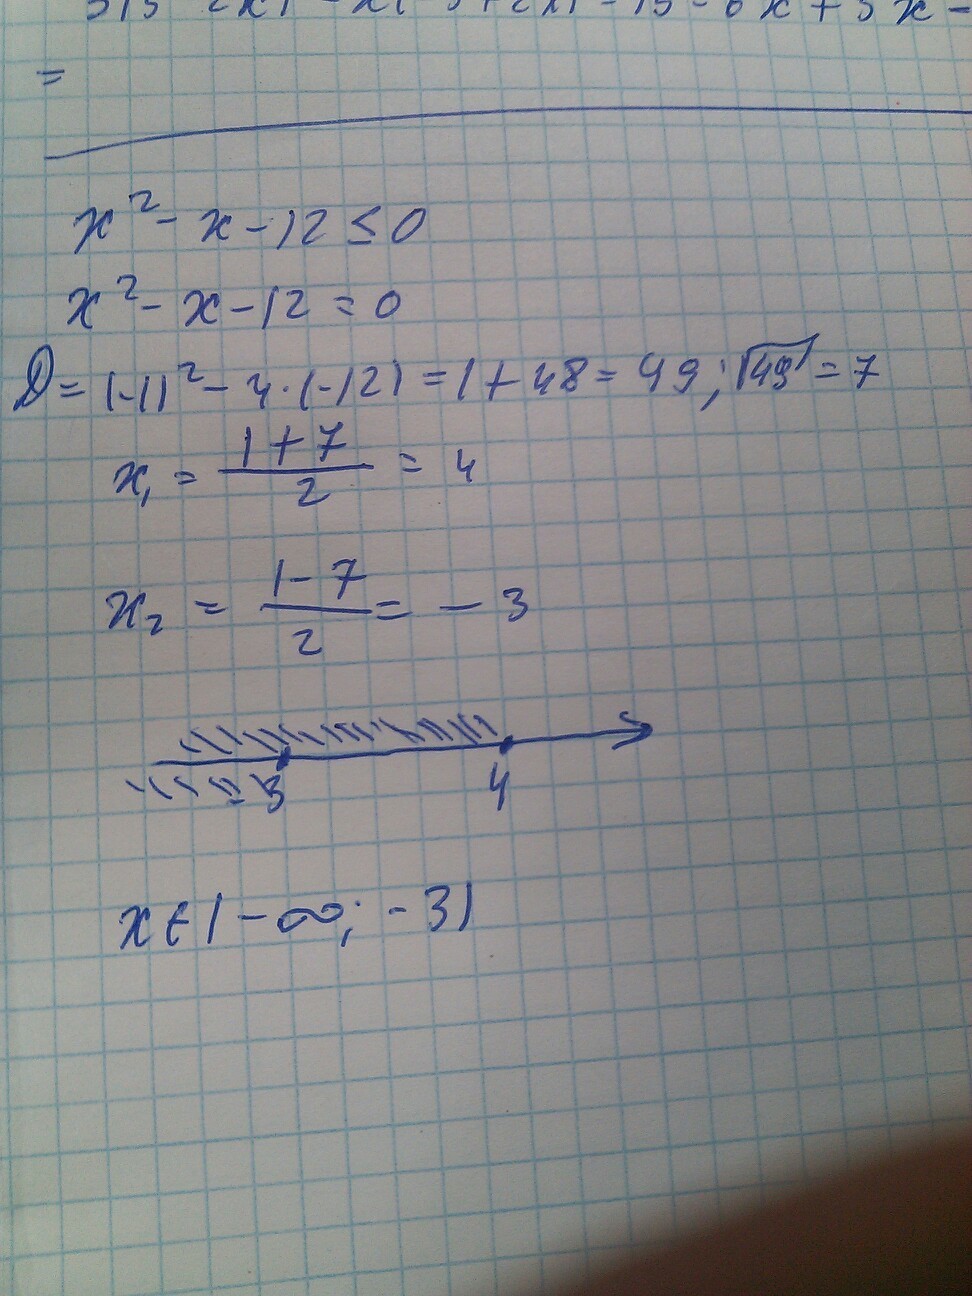 =
x² - x - 12 ≤ 0
x² - x - 12 = 0
D = (-1)² - 4·(-12) = 1 + 48 = 49; √49 = 7
x₁ = (1+7)/2 = 4
x₂ = (1-7)/2 = -3
-3 4
x ∈ (-∞; -3)